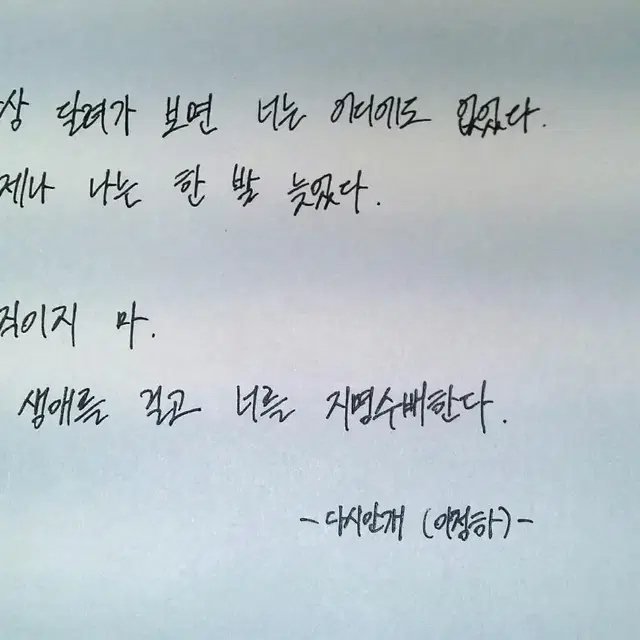 상 달려가 보면 너는 어디에도 없었다.
제나 나는 한 발 늦었다.
직이지 마.
생애를 걸고 너를 지명수배한다.
- 다시안개 (이정하) -